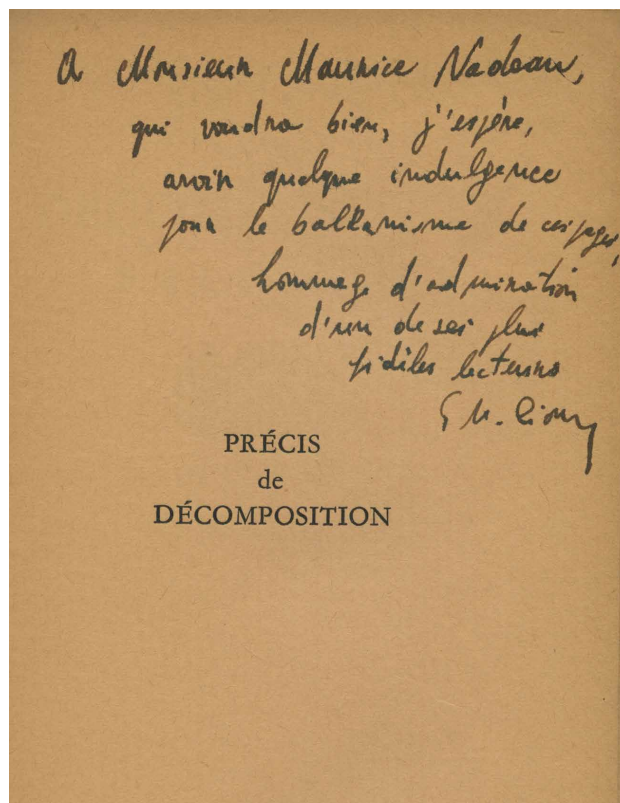 A Monsieur Maurice Nadeau,
qui voudra bien, j'espère,
avoir quelque indulgence
pour le balkanisme de ces pages,
hommage d'admiration
d'un de ses plus
fidèles lecteurs
E. M. Cioran
PRÉCIS
de
DÉCOMPOSITION